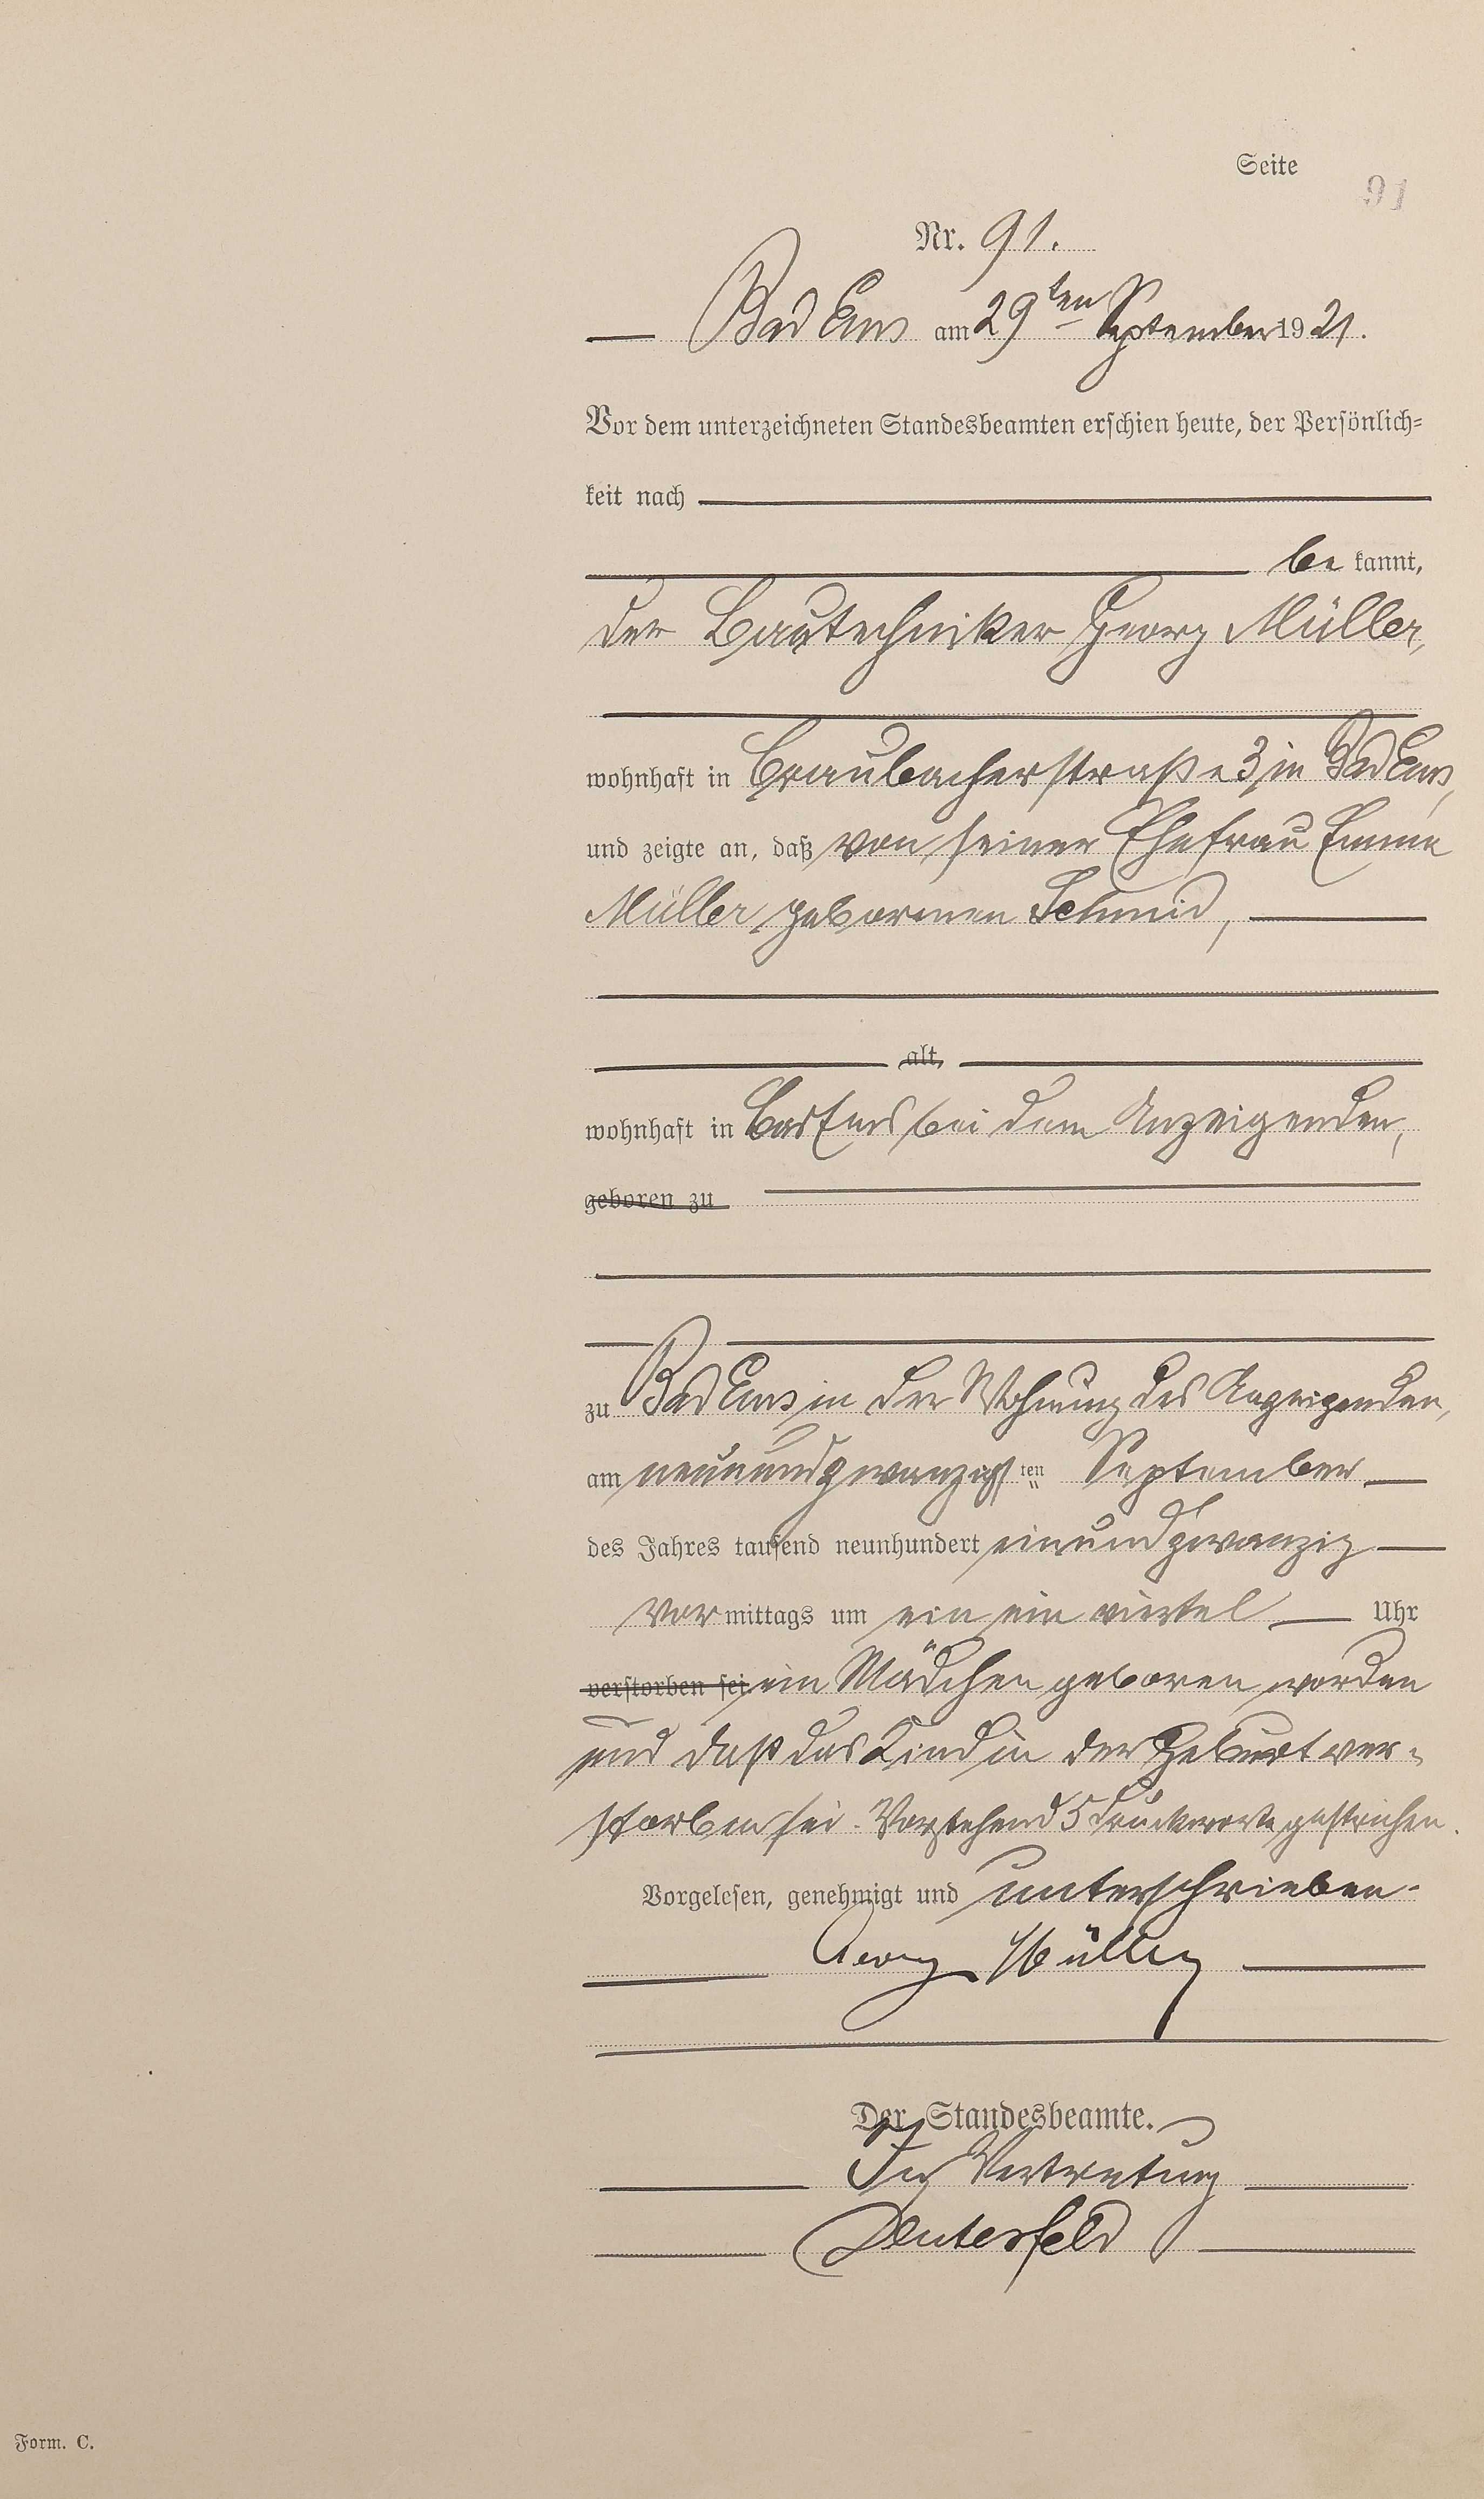 Seite
91
Nr. 91.
Bad Ems am 29ten September 1921.
Vor dem unterzeichneten Standesbeamten erschien heute, der Persönlich-
keit nach
be kannt,
der Bautechniker Georg Müller,
wohnhaft in Braubacherstraße 3 in Bad Ems,
und zeigte an, daß von seiner Ehefrau Emma
Müller geborenen Schmid,
alt,
wohnhaft in Bad Ems bei dem Anzeigenden,
geboren zu
zu Bad Ems in der Wohnung des Anzeigenden,
am neunundzwanzigsten September
des Jahres tausend neunhundert einundzwanzig
Vormittags um ein ein viertel Uhr
verstorben sei. ein Mädchen geboren worden
und daß das Kind in der Geburt ver-
storben sei. Vorstehend 5 Druckworte gestrichen.
Vorgelesen, genehmigt und unterschrieben.
Georg Müller
Der Standesbeamte.
In Vertretung
Form. C.